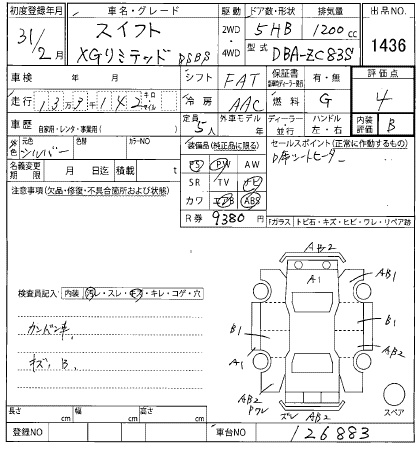 初度登録年月 車名・グレード 駆動 ドア数・形状 排気量 出品NO.
31/2月 スイフト 2WD 5HB 1200cc 1436
XGリミテッド DSBS 4WD 型式 DBA-ZC83S
車検 年 月 シフト FAT 保証書 有・無 評価点
走行 13万9千142キロ マイル 冷房 AAC 燃料 G 4
車歴 自家用・レンタ・事業用( ) 定員 5人 外車モデル 年 ディーラー・並行 ハンドル 左・右 内装評価 B
色 元色 シルバー 色替 カラーNO
名義変更期限 月 日迄 積載 t
装備品(純正品に限る) セールスポイント(正常に作動するもの)
PS PW AW
SR TV ナビ
カワ エアB ABS
R券 9380円
D席シートヒーター
注意事項(欠品・修復・不具合箇所および状態)
「ガラス」トビ石・キズ・ヒビ・ワレ・リペア跡
検査員記入 内装 汚レ・スレ・キズ・キレ・コゲ・穴
カンドン車
キズ, B
AB2
A1
AB1
B1
B1
A1
AB2
AB2
Pワレ
ズレ AB2
スペア
長さ cm 幅 cm 高さ cm
登録NO 車台NO 126883